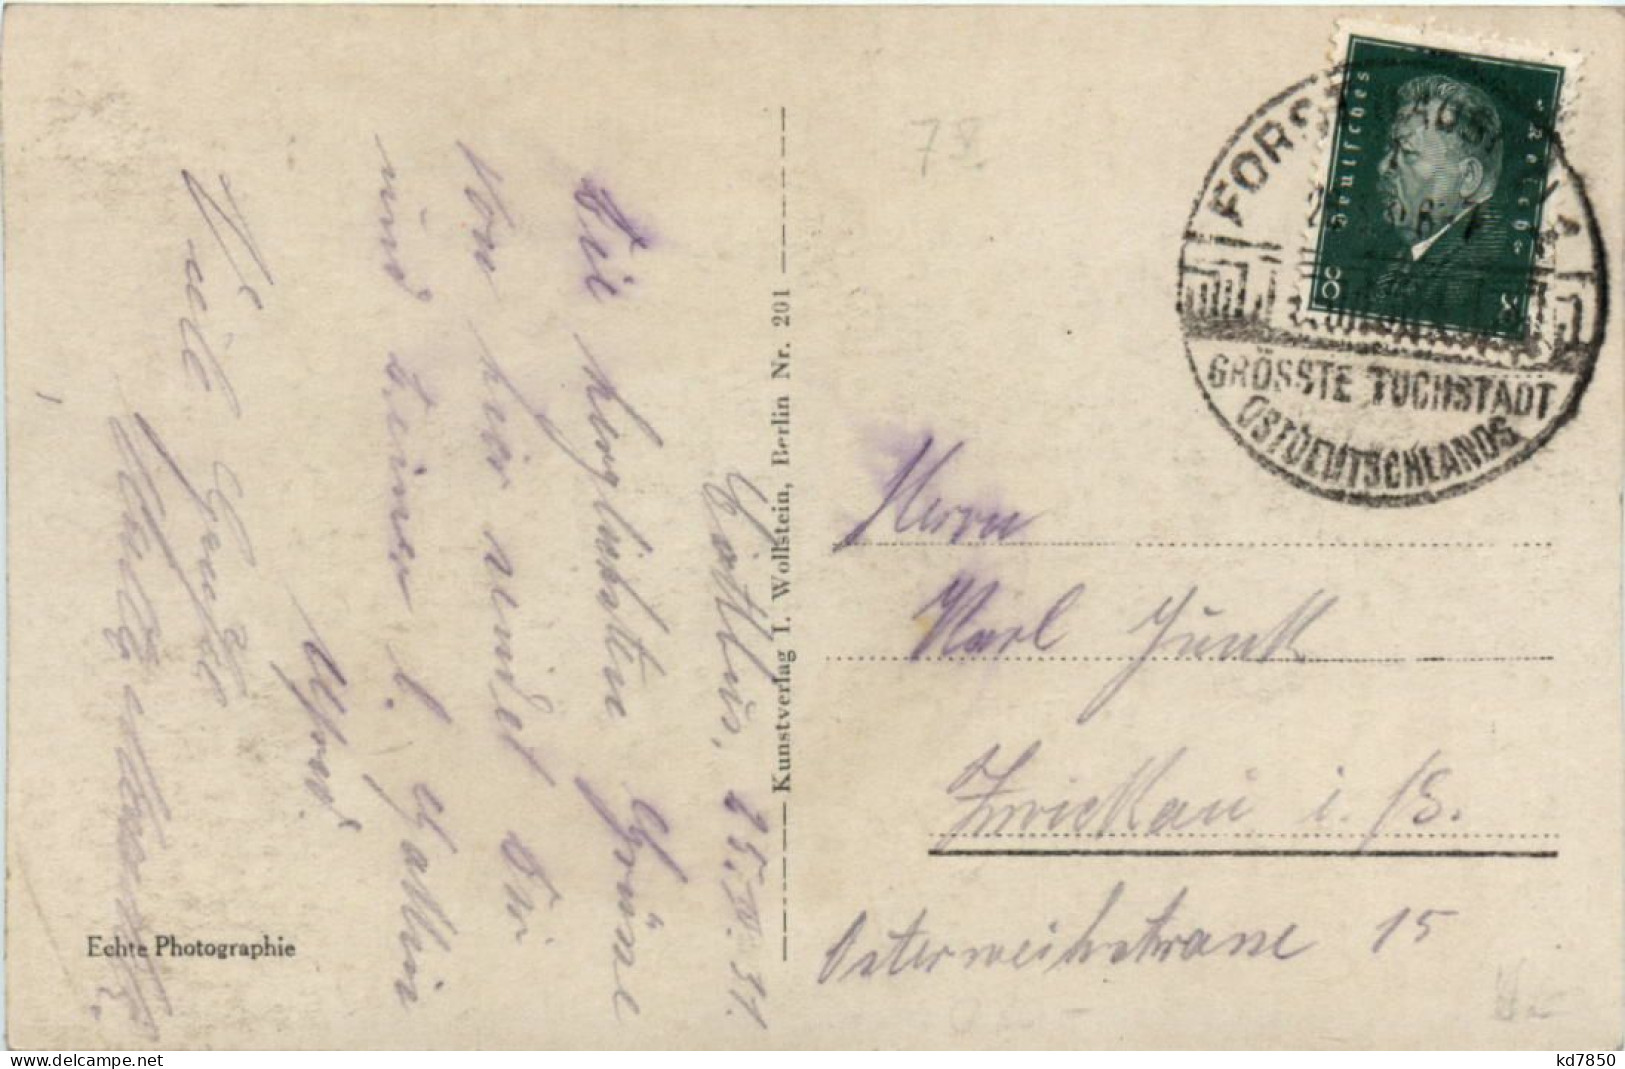 Cottbus, 25.IV. 31.
Die herzlichsten Grüsse
von hier sendet Dir
und Deiner l. Gattin
Viele Grüsse
Kunstverlag J. Wollstein, Berlin Nr. 201
Echte Photographie
78
FORST LAUSITZ
GRÖSSTE TUCHSTADT
OSTDEUTSCHLANDS
Deutsches Reich
8 8
Herrn
Karl Junk
Zwickau i. /S.
Osterweihstrasse 15
www.delcampe.net
kd7850